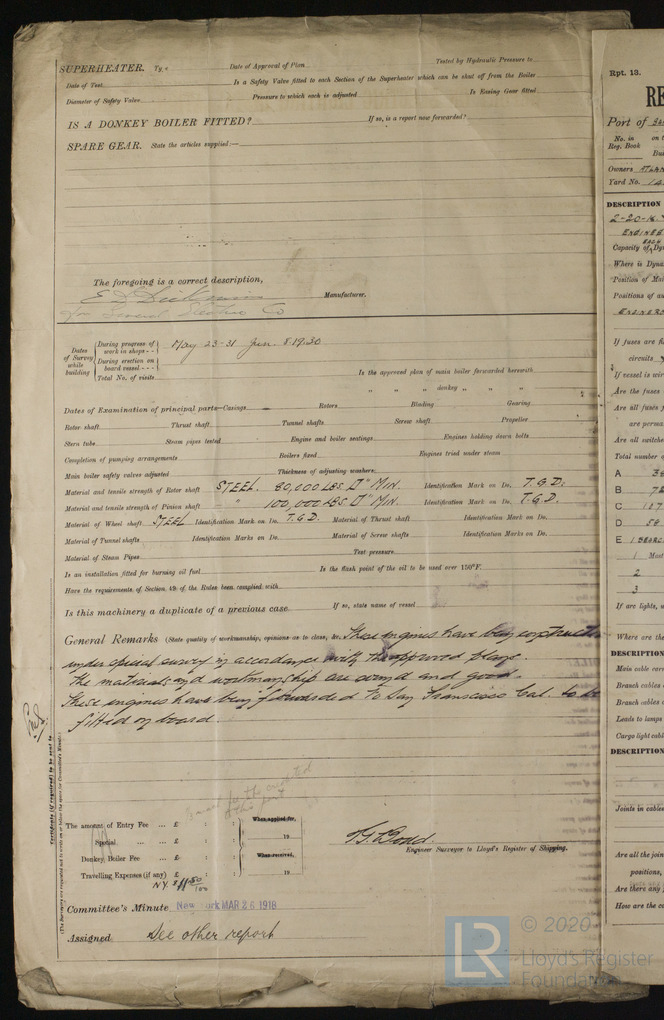 SUPERHEATER. Type Date of Approval of Plan Tested by Hydraulic Pressure to
Date of Test Is a Safety Valve fitted to each Section of the Superheater which can be shut off from the Boiler
Diameter of Safety Valve Pressure to which each is adjusted Is Easing Gear fitted
IS A DONKEY BOILER FITTED? If so, is a report now forwarded?
SPARE GEAR. State the articles supplied:—
The foregoing is a correct description,
Manufacturer.
For General Electric Co
Dates of Survey while building
During progress of work in shops - - May 23-31 Jun. 8.19.20
During erection on board vessel - - -
Total No. of visits
Is the approved plan of main boiler forwarded herewith
" " " donkey " " "
Dates of Examination of principal parts—Casings Rotors Blading Gearing
Rotor shaft Thrust shaft Tunnel shafts Screw shaft Propeller
Stern tube Steam pipes tested Engine and boiler seatings Engines holding down bolts
Completion of pumping arrangements Boilers fixed Engines tried under steam
Main boiler safety valves adjusted Thickness of adjusting washers
Material and tensile strength of Rotor shaft STEEL. 80,000 LBS □" MIN. Identification Mark on Do. T.G.D.
Material and tensile strength of Pinion shaft " 100,000 LBS □" MIN. Identification Mark on Do. T.G.D.
Material of Wheel shaft STEEL Identification Mark on Do. T.G.D. Material of Thrust shaft Identification Mark on Do.
Material of Tunnel shafts Identification Marks on Do. Material of Screw shafts Identification Marks on Do.
Material of Steam Pipes Test pressure
Is an installation fitted for burning oil fuel Is the flash point of the oil to be used over 150°F.
Have the requirements of Section 49 of the Rules been complied with
Is this machinery a duplicate of a previous case If so, state name of vessel
General Remarks (State quality of workmanship, opinions as to class, &c. These engines have been constructed
under special survey in accordance with the approved plans.
The materials and workmanship are sound and good.
These engines have been forwarded to San Francisco Cal. to be
fitted on board.
Certificate (if required) to be sent to
(The Surveyors are requested not to write on or below the space for Committee's Minute.)
The amount of Entry Fee ... £ : : When applied for,
Special ... ... £ : : 19
Donkey Boiler Fee ... £ : : When received,
Travelling Expenses (if any) £ : : 19
N.Y. $11 50/100
Engineer Surveyor to Lloyd's Register of Shipping.
Committee's Minute New York MAR 26 1918
Assigned See other report
Rpt. 13.
Port of
No. in
Reg. Book
Owners
Yard No.
DESCRIPTION
2-20-
Capacity of
EACH
Where is Dyna
Position of Mai
Positions of au
If fuses are fi
circuits
If vessel is wir
Are the fuses
Are all fuses
are perma
Are all switche
Total number o
A
B
C
D
E
1 Mast
2
3
If arc lights,
Where are the
DESCRIPTION
Main cable carr
Branch cables
Branch cables
Leads to lamps
Cargo light cabl
DESCRIPTION
Joints in cables
Are all the join
positions,
Are there any
How are the ca
LR
© 2020
Lloyd's Register
Foundation